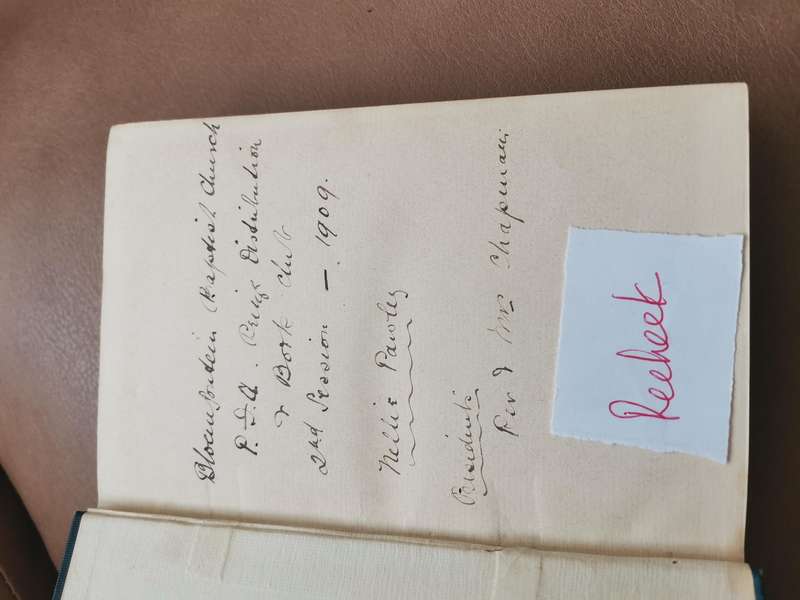 Bloemfontein Baptist Church
P. S. A. Prize Distribution
& Book Club
2nd Session — 1909.
Nellie Pawley
Presidents
Rev & Mrs Chapman
Reeheek